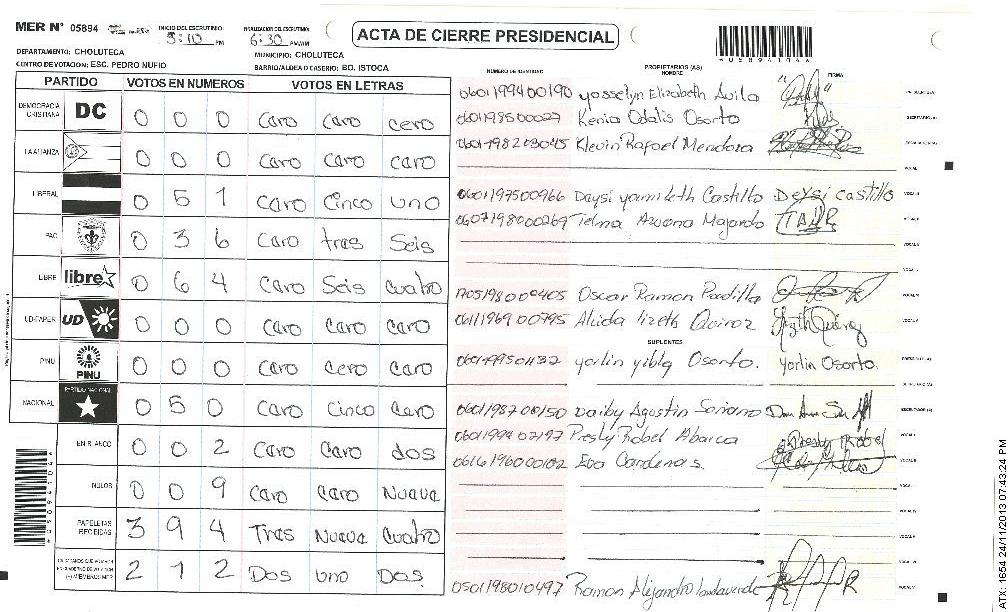 MER N° 05894 INICIO DEL ESCRUTINIO: 5:10 PM FINALIZACION DEL ESCRUTINIO: 6:30 PM/AM
ACTA DE CIERRE PRESIDENCIAL
*058941044
DEPARTAMENTO: CHOLUTECA MUNICIPIO: CHOLUTECA
CENTRO DE VOTACION: ESC. PEDRO NUFIO BARRIO/ALDEA O CASERIO: BO. ISTOCA
PARTIDO VOTOS EN NUMEROS VOTOS EN LETRAS
DEMOCRACIA CRISTIANA DC 0 0 0 Caro Caro cero
LA ALIANZA 0 0 0 Caro Caro caro
LIBERAL 0 5 1 Caro Cinco uno
PAC 0 3 6 Caro tras Seis
LIBRE libre 0 6 4 Caro Seis cuatro
UD-FAPER UD 0 0 0 Caro Caro Caro
PINU PINU 0 0 0 Caro Cero Caro
NACIONAL PARTIDO NACIONAL 0 5 0 Caro Cinco Caro
EN BLANCO 0 0 2 Caro Caro dos
NULOS 0 0 9 Caro Caro Nuava
PAPELETAS RECIBIDAS 3 9 4 Tras Nuava Cuatro
2 1 2 Dos uno Dos
NUMERO DE IDENTIDAD PROPIETARIOS (AS) NOMBRE FIRMA
0601199400190 yosselyn Elizabeth Avila PRESIDENTE(A)
0601198500027 Kenia Odalis Osorto SECRETARIO(A)
0601198203045 Klevin Rafael Mendoza ESCRUTADOR(A)
VOCAL I
0601197500966 Daysi yamileth Castillo Deysi castillo
0607198000269 Telma Majardo
1705198000405 Oscar Ramon Padilla
0611196900795 Alcida lizeth Quiroz
SUPLENTES
yorlin yibly Osorto. yorlin Osorto. PRESIDENTE(A)
SECRETARIO(A)
0601198700150 Daiby Agustin Soriano ESCRUTADOR(A)
0601199402197 Presly Robel Abarca Presby Robel
0616196000102 Eva Cardenas.
0501198010497 Ramon Alejandro landaverde
ATX: 1654 24/11/2013 07:43:24 PM